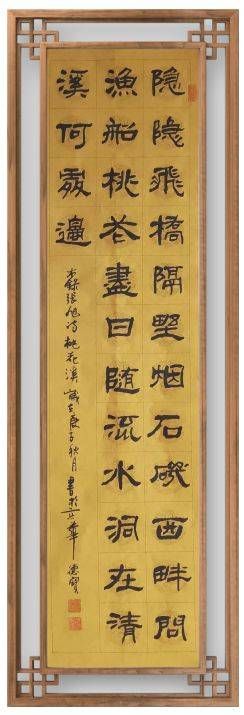 隐隐飛橋隔野烟石磯西畔問
漁船桃花盡日随流水洞在清
溪何處邊
書錄張旭詩桃花溪歲在庚子秋月書於京華德寶